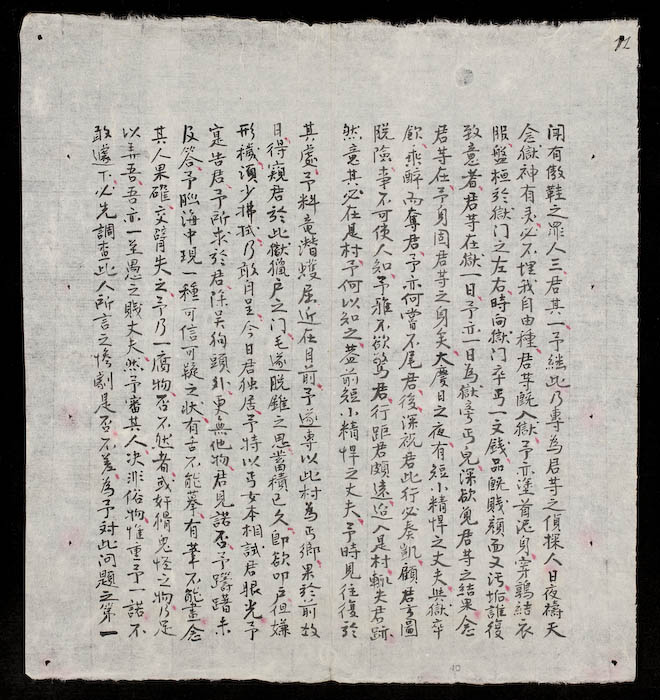 聞有傲鞋之罪人三君其一予繼此乃專為君等之偵探人日夜禱天
念獄神有灵必不埋我自由種君等既入獄予亦塗首泥身穿鶉結衣
服盤桓於獄門之左右時向獄門卒丐一文錢品既賎顔面又污垢誰復
致意者君等在獄一日予亦一日為獄旁丐兒深欲覓君等之結果念
君等在予身固君等之身矣大慶日之夜有短小精悍之丈夫與獄卒
飲乘醉而奪君予亦何嘗不尾君後深祝君此行必奏凱顧君等圖
脱險幸不可使人知予雅不欲驚君行距君頗遠迨入是村輒失君跡
然意其必在是村予何以知之葢前短小精悍之丈夫予時見往復於
其處予料竜潜蠖屈近在目前予遂專以此村為丐鄉果於前数
日得窺君於此獄獵户之门毛遂脱錐之思當積已久即欲叩户但嫌
形穢須少拂拭乃敢自呈今日君独居予特以丐女本相試君眼光予
寔告君予所求於君除吴狗頭外更無他物君見諾否予躊躇未
及答予腦海中現一種可信可疑之状有舌不能摹有筆不能畫念
其人果確交臂失之予乃一腐物否不然者或奸猾鬼怪之物乃足
以弄吾吾亦一至愚之賎丈夫然予審其人决非俗物惟重予一諾不
敢遽下必先調查此人所言之慘劇是否不差為予対此问題之第一